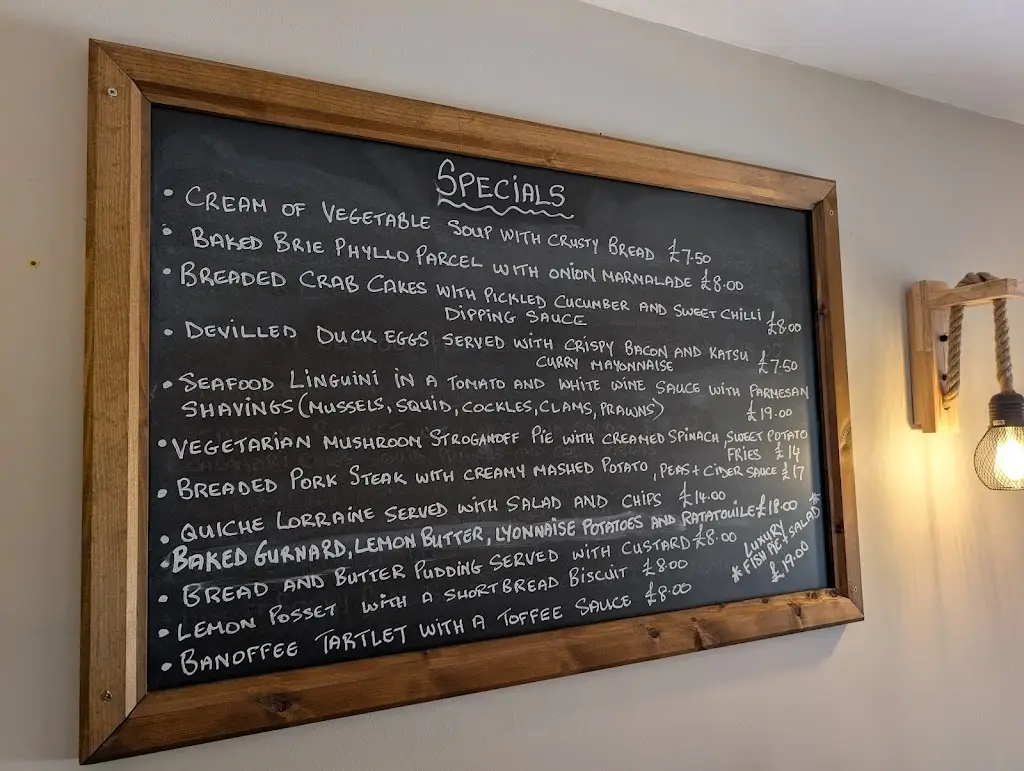 SPECIALS
• CREAM OF VEGETABLE SOUP WITH CRUSTY BREAD £7.50
• BAKED BRIE PHYLLO PARCEL WITH ONION MARNALADE £8.00
• BREADED CRAB CAKES WITH PICKLED CUCUMBER AND SWEET CHILLI
DIPPING SAUCE £8.00
• DEVILLED DUCK EGGS SERVED WITH CRISPY BACON AND KATSU
CURRY MAYONNAISE £7.50
• SEAFOOD LINGUINI IN A TOMATO AND WHITE WINE SAUCE WITH PARMESAN
SHAVINGS (MUSSELS, SQUID, COCKLES, CLAMS, PRAWNS) £19.00
• VEGETARIAN MUSHROOM STROGANOFF PIE WITH CREAMED SPINACH, SWEET POTATO
FRIES £14
• BREADED PORK STEAK WITH CREAMY MASHED POTATO, PEAS + CIDER SAUCE £17
• QUICHE LORRAINE SERVED WITH SALAD AND CHIPS £14.00
• BAKED GURNARD, LEMON BUTTER, LYONNAISE POTATOES AND RATATOUILE £18.00
• BREAD AND BUTTER PUDDING SERVED WITH CUSTARD £8.00
• LEMON POSSET WITH A SHORTBREAD BISCUIT £8.00
• BANOFFEE TARTLET WITH A TOFFEE SAUCE £8.00
LUXURY
* FISH PIE / SALAD *
£19.00